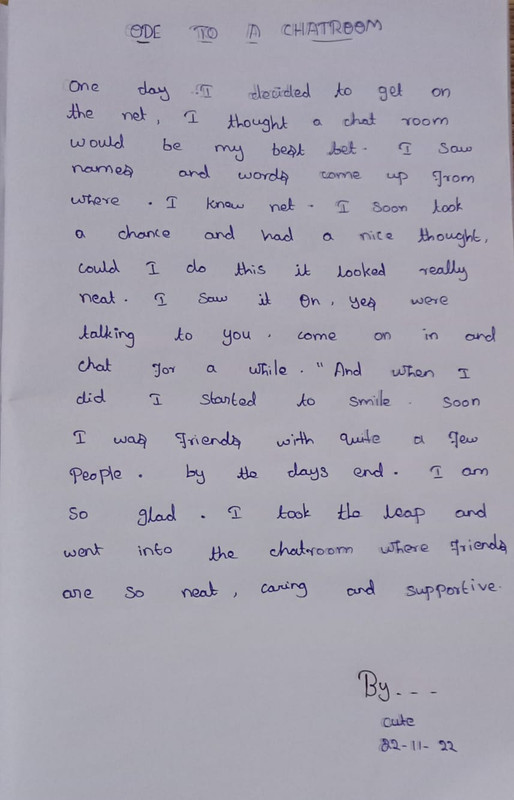 ODE TO A CHATROOM
One day I decided to get on
the net, I thought a chat room
would be my best bet. I saw
names and words come up from
where . I know net . I soon took
a chance and had a nice thought,
could I do this it looked really
neat. I saw it on, yes were
talking to you. come on in and
chat for a while. " And when I
did I started to smile . soon
I was friends with quite a few
people . by the days end . I am
so glad . I took the leap and
went into the chatroom where friends
are so neat , caring and supportive.
By....
cute
22-11-22